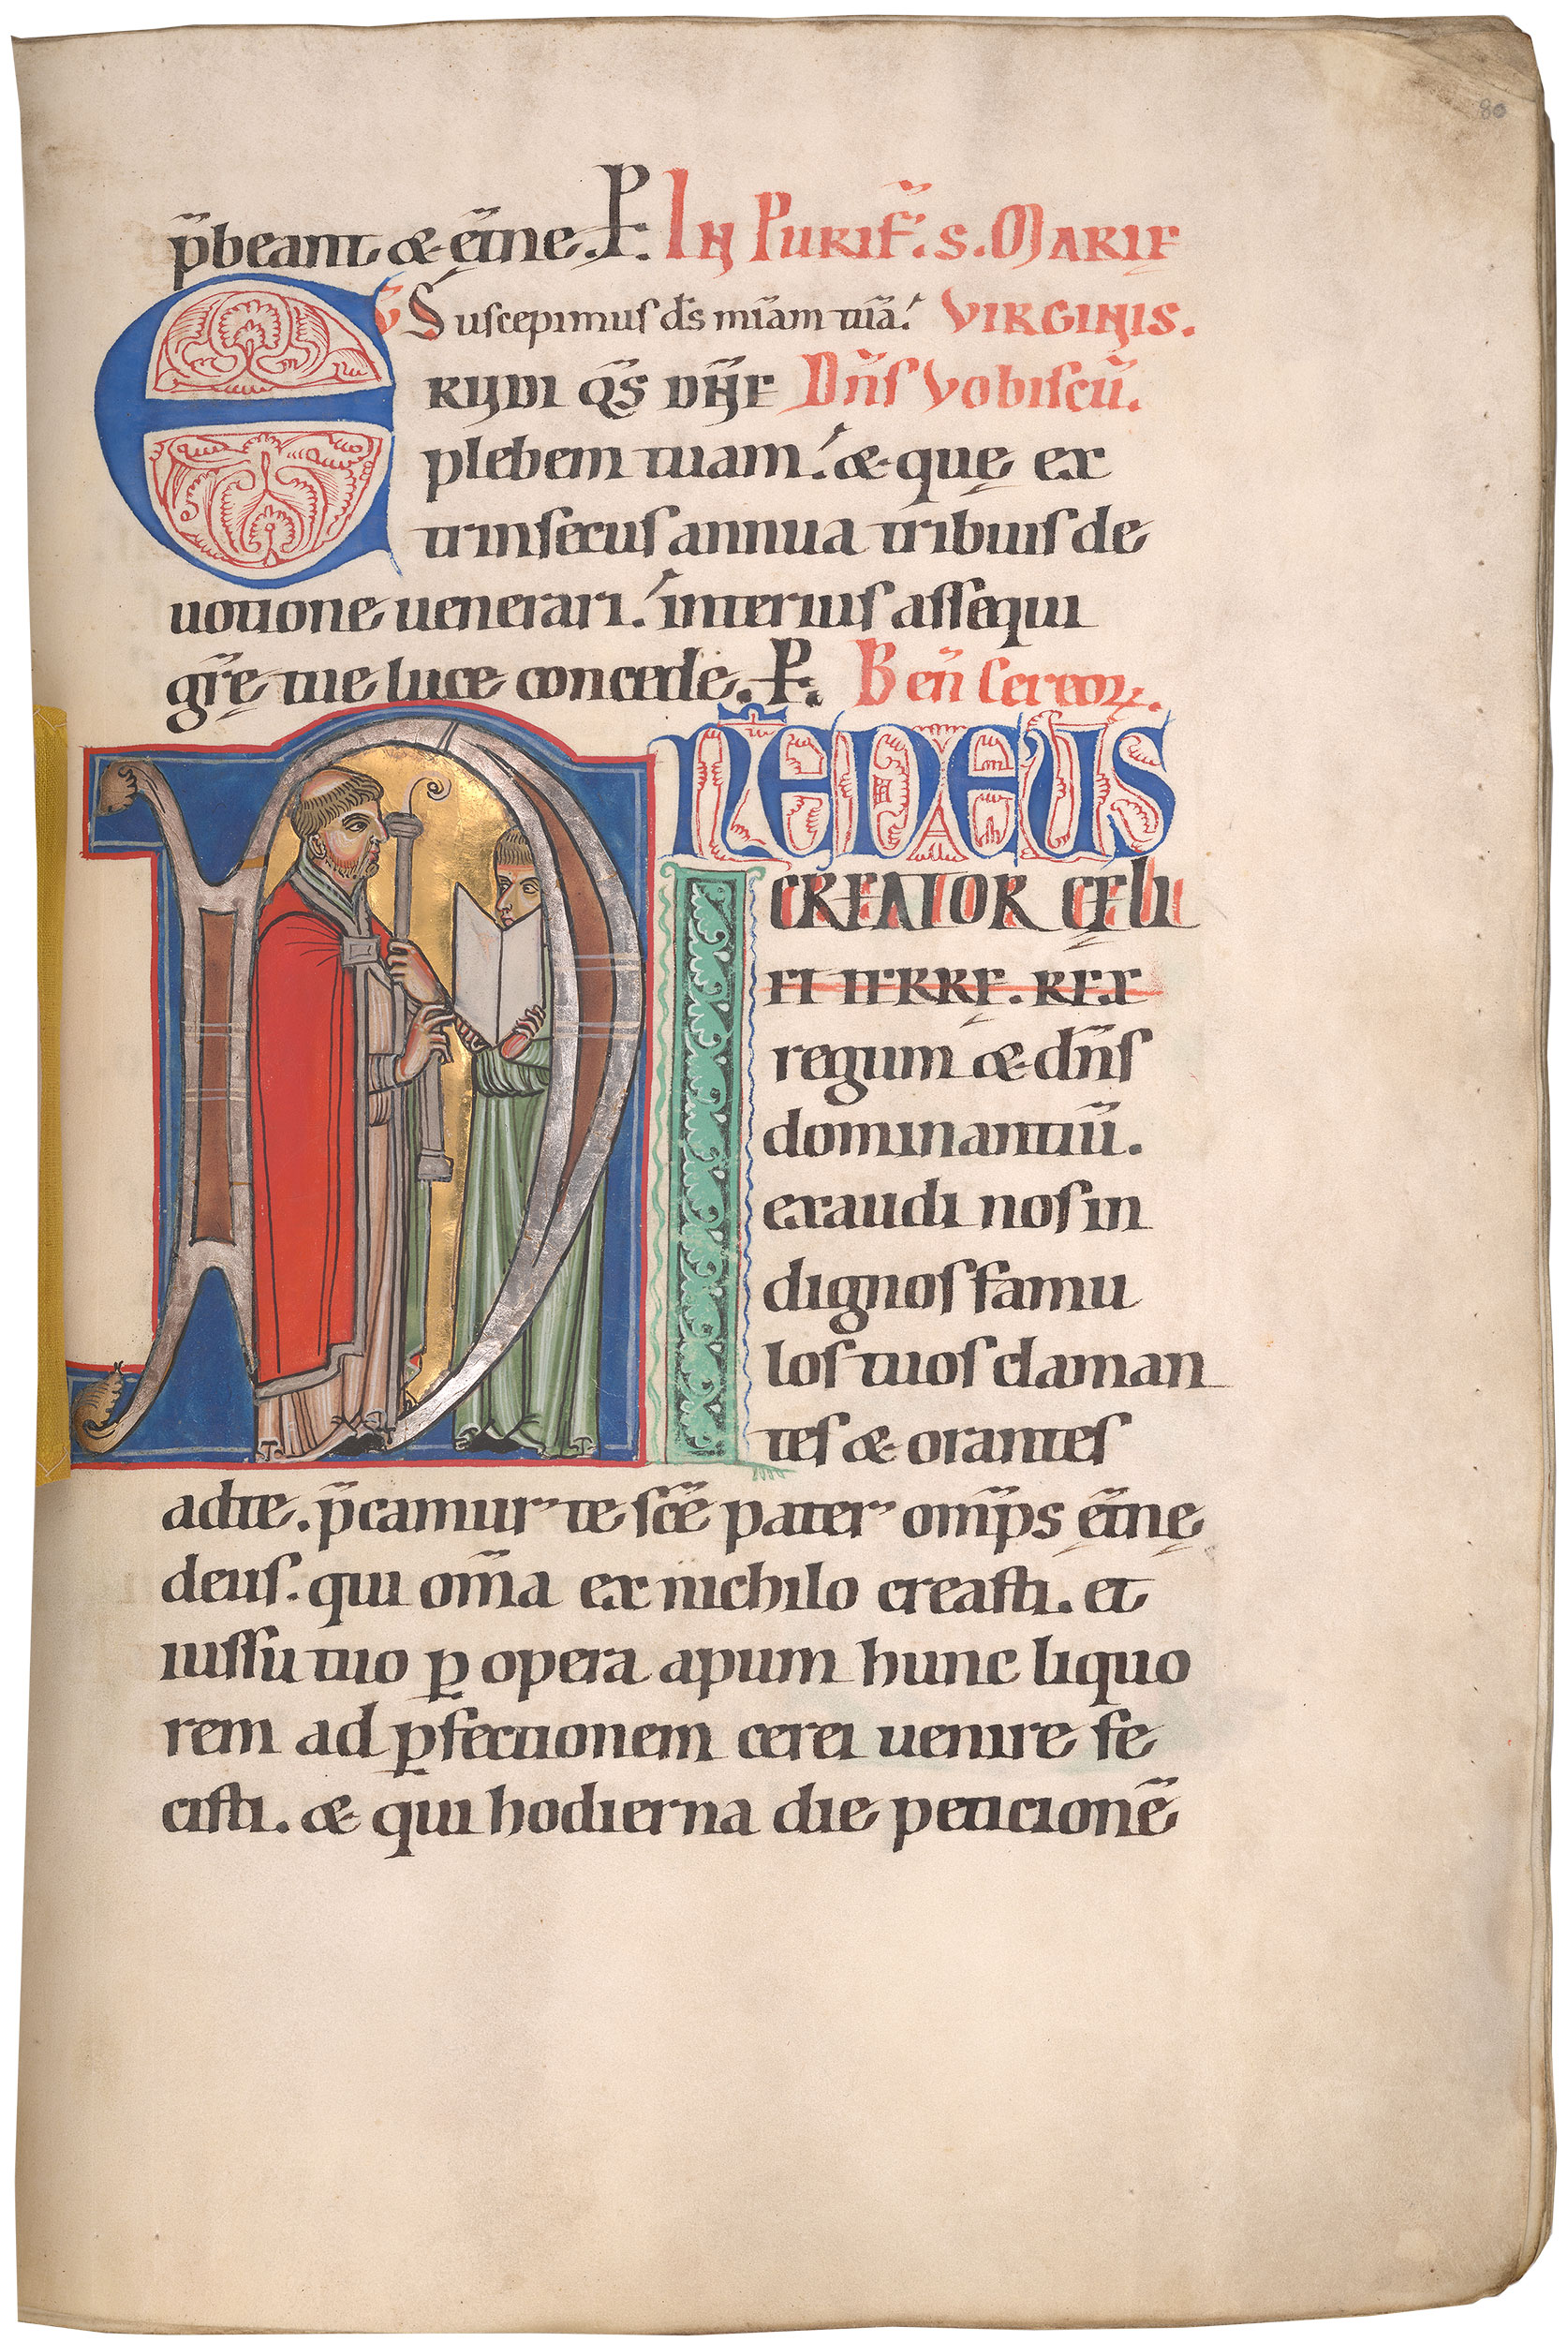 80
p̄beant & ęt̄ne. P. In Purif̄. S. Marię
V̄ Suscepimus d̄s mīam tuā. Virginis.
Erudi q̄s dn̄e Dn̄s vobiscū.
plebem tuam. & quę ex
trinsecus annua tribuis de
uotione uenerari. interius assequi
gr̄ę tue luce concede. P. Ben̄ cereoꝝ.
Dn̄e deus
I creator cęli
et terrę. rex
regum & dn̄s
dominantiū.
exaudi nos in
dignos famu
los tuos claman
tes & orantes
ad te. p̄camur te sc̄e pater om̄ps ęt̄nę
deus. qui om̄a ex nichilo creasti. et
iussu tuo ꝑ opera apum hunc liquo
rem ad ꝑfectionem cerei uenire fe
cisti. & qui hodierna die peticionē